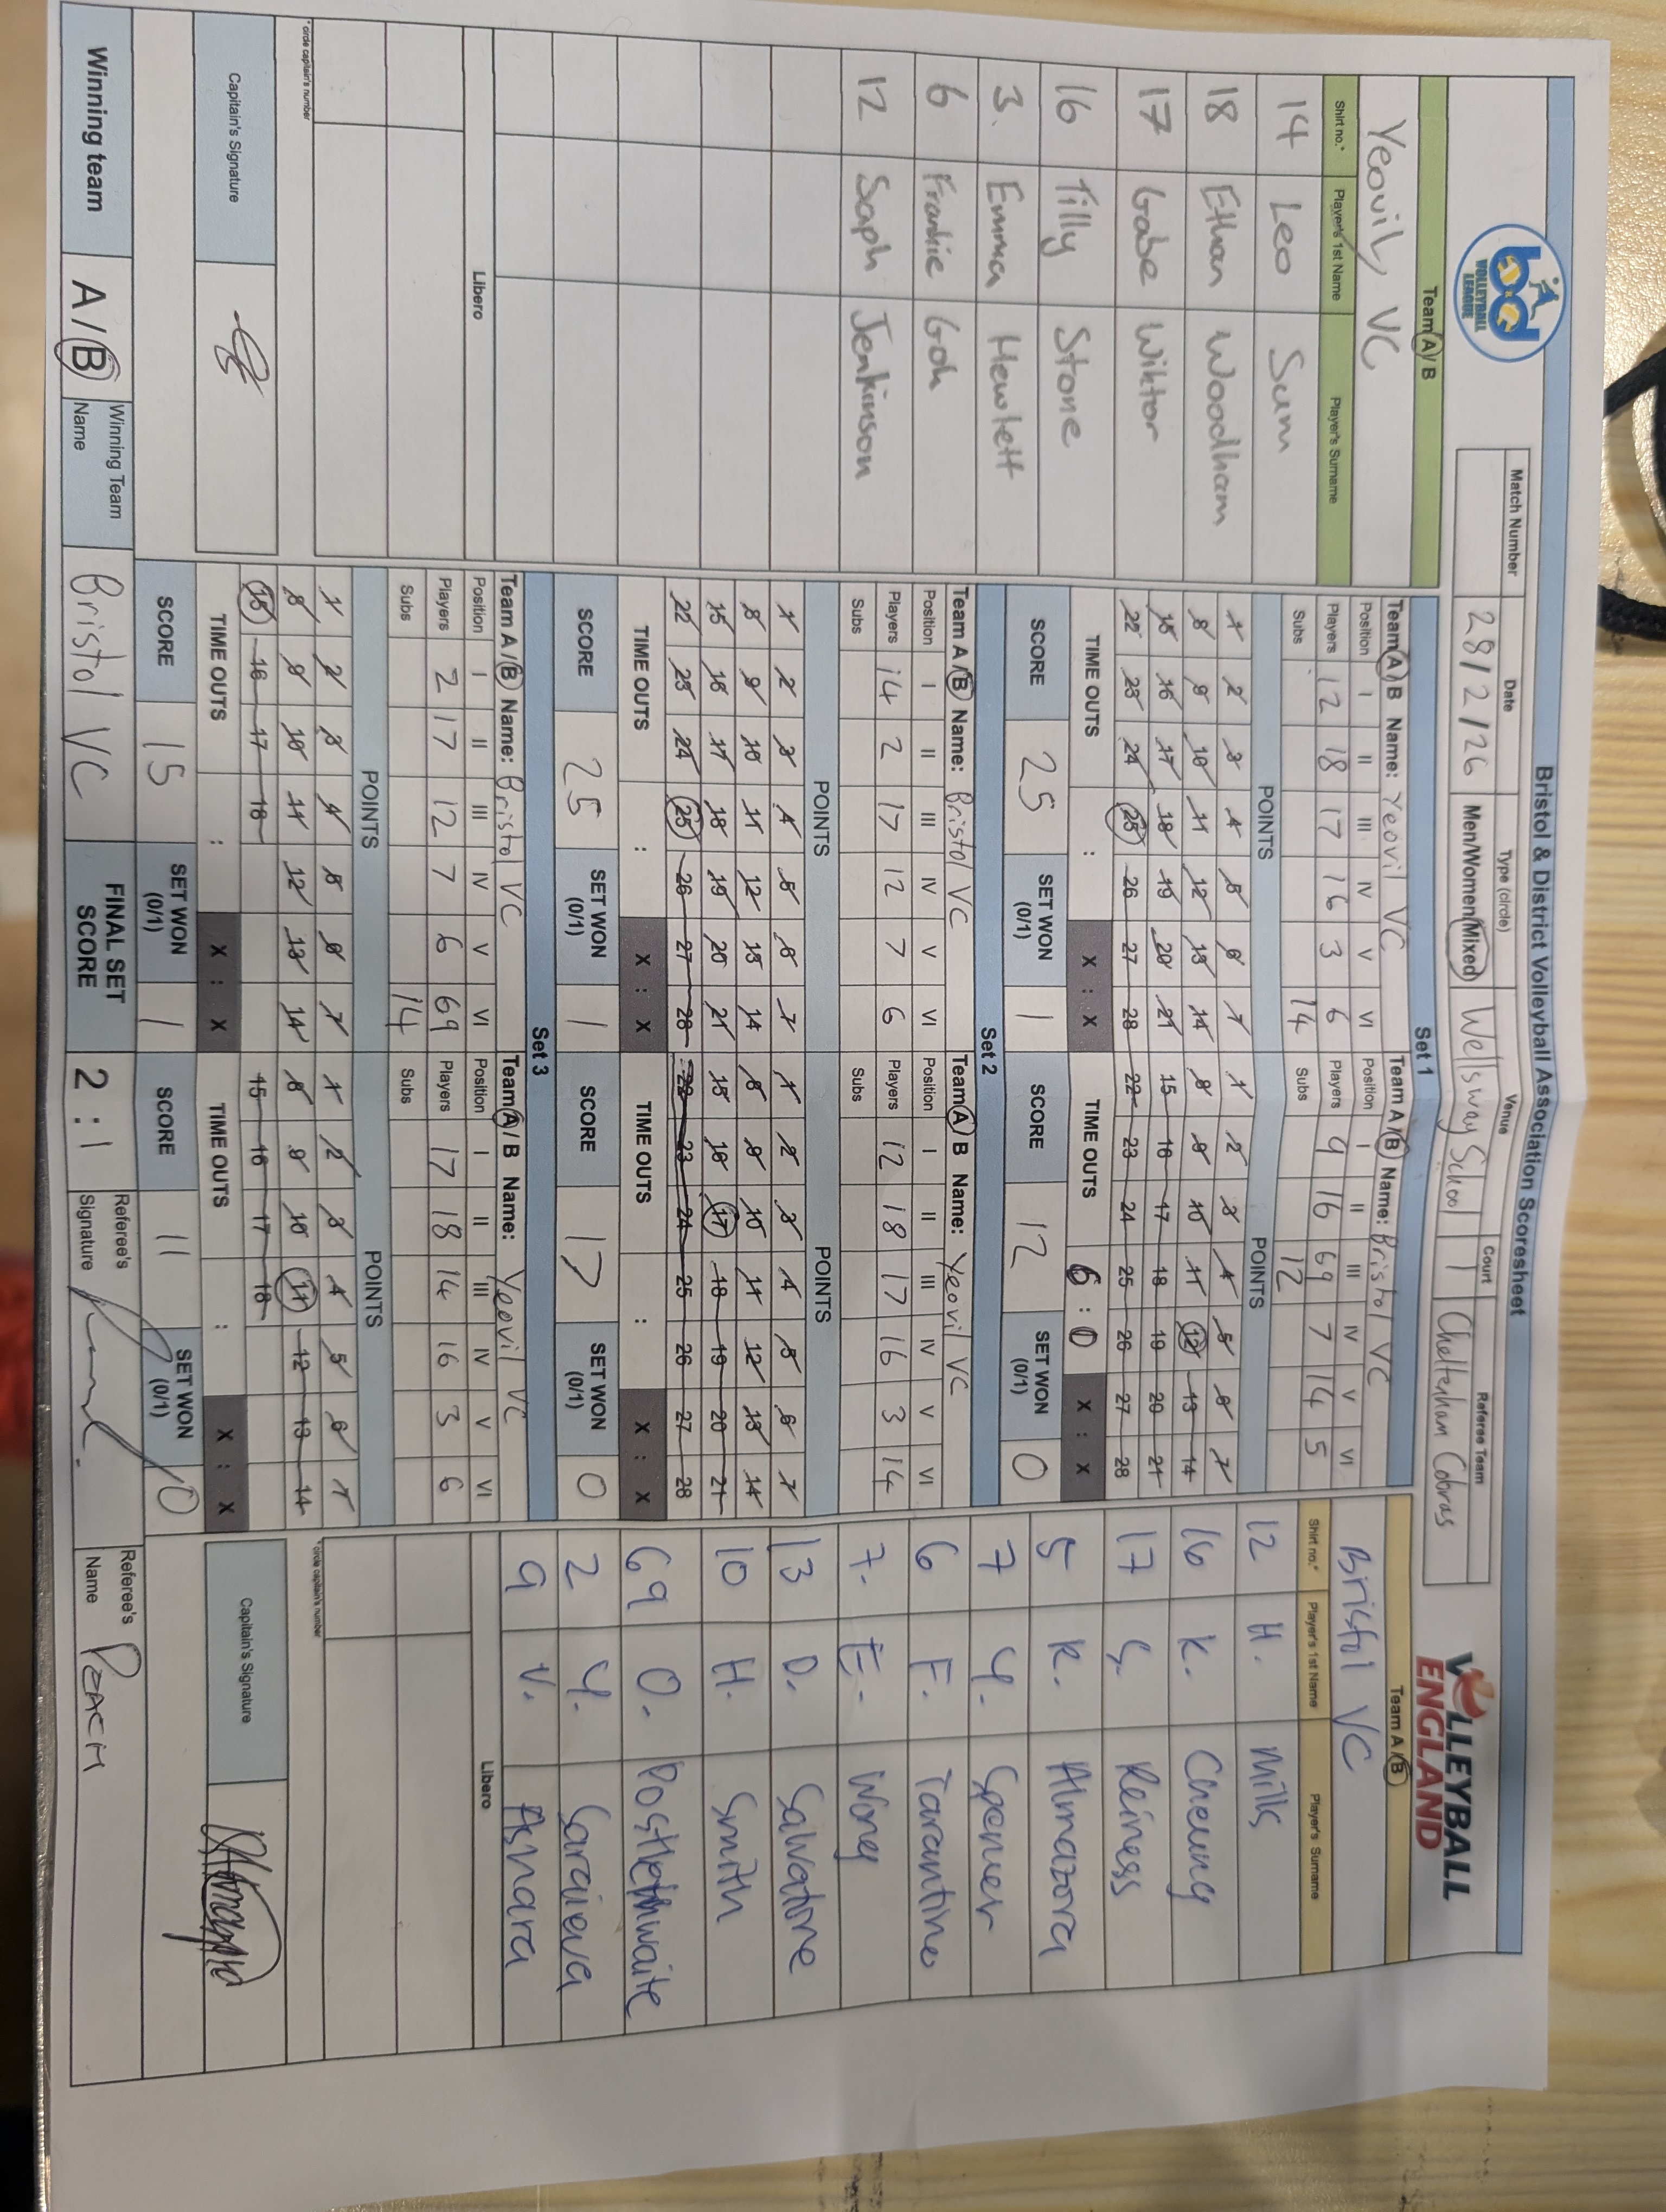 Bristol & District Volleyball Association Scoresheet
bd
VOLLEYBALL
LEAGUE
VOLLEYBALL
ENGLAND
Match Number Date Type (circle) Venue Court Referee Team
28/2/26 Men/Women/Mixed Wellsway School 1 Cheltenham Cobras
Team A / B
Yeovil VC
Shirt no.* Player's 1st Name Player's Surname
14 Leo Sum
18 Ethan Woodham
17 Gabe Wiktor
16 Tilly Stone
3. Emma Hewlett
6 Frankie Goh
12 Saph Jenkinson
Libero
*circle captain's number
Capitain's Signature
Set 1
Team A / B Name: Yeovil VC
Position I II III IV V VI
Players 12 18 17 16 3 6
Subs 14
POINTS
1 2 3 4 5 6 7
8 9 10 11 12 13 14
15 16 17 18 19 20 21
22 23 24 25 26 27 28
TIME OUTS : X : X
SCORE 25 SET WON (0/1) 1
Team A / B Name: Bristol VC
Position I II III IV V VI
Players 9 16 69 7 14 5
Subs 12
POINTS
1 2 3 4 5 6 7
8 9 10 11 12 13 14
15 16 17 18 19 20 21
22 23 24 25 26 27 28
TIME OUTS 6 : 0 X : X
SCORE 12 SET WON (0/1) 0
Set 2
Team A / B Name: Bristol VC
Position I II III IV V VI
Players 14 2 17 12 7 6
Subs
POINTS
1 2 3 4 5 6 7
8 9 10 11 12 13 14
15 16 17 18 19 20 21
22 23 24 25 26 27 28
TIME OUTS : X : X
SCORE 25 SET WON (0/1) 1
Team A / B Name: Yeovil VC
Position I II III IV V VI
Players 12 18 17 16 3 14
Subs
POINTS
1 2 3 4 5 6 7
8 9 10 11 12 13 14
15 16 17 18 19 20 21
22 23 24 25 26 27 28
TIME OUTS : X : X
SCORE 17 SET WON (0/1) 0
Set 3
Team A / B Name: Bristol VC
Position I II III IV V VI
Players 2 17 12 7 6 69
Subs 14
POINTS
1 2 3 4 5 6 7
8 9 10 11 12 13 14
15 16 17 18
TIME OUTS : X : X
SCORE 15 SET WON (0/1) 1
Team A / B Name: Yeovil VC
Position I II III IV V VI
Players 17 18 14 16 3 6
Subs
POINTS
1 2 3 4 5 6 7
8 9 10 11 12 13 14
15 16 17 18
TIME OUTS : X : X
SCORE 11 SET WON (0/1) 0
Team A / B
Bristol VC
Shirt no.* Player's 1st Name Player's Surname
12 H. Mills
16 K. Cheung
17 S. Reiness
5 R. Almazora
7 Y. Spencer
6 F. Tarantino
7. E. Wong
13 D. Salvatore
10 H. Smith
69 O. Postlethwaite
2 Y. Saraieva
9 V. Asnara
Libero
*circle captain's number
Capitain's Signature
Winning team A / B Winning Team Name Bristol VC FINAL SET SCORE 2 : 1 Referee's Signature Referee's Name PEACH